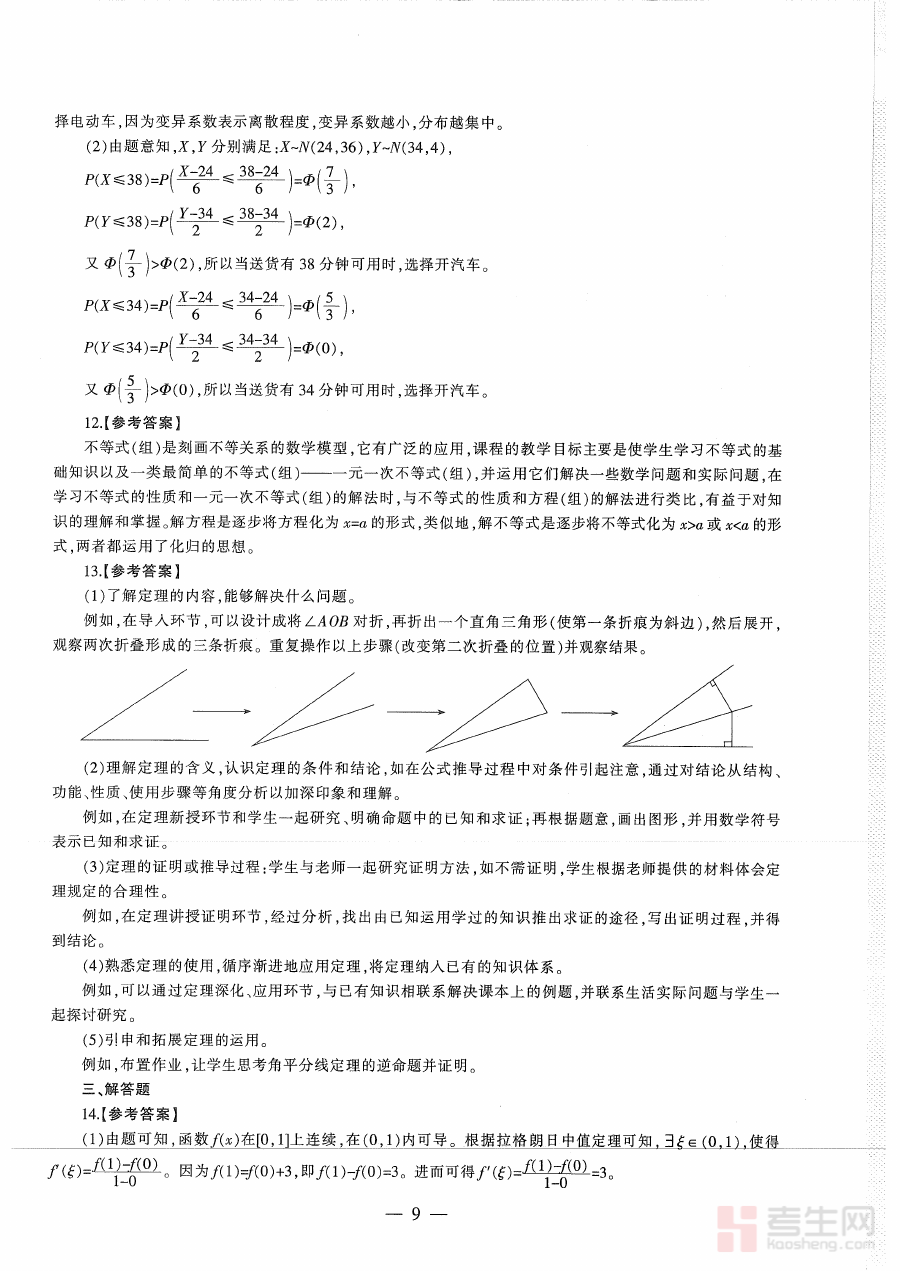 择电动车,因为变异系数表示离散程度,变异系数越小,分布越集中。
(2)由题意知,X,Y 分别满足:X~N(24,36),Y~N(34,4),
P(X≤38)=P((X-24)/6≤(38-24)/6)=Φ(7/3),
P(Y≤38)=P((Y-34)/2≤(38-34)/2)=Φ(2),
又 Φ(7/3)>Φ(2),所以当送货有 38 分钟可用时,选择开汽车。
P(X≤34)=P((X-24)/6≤(34-24)/6)=Φ(5/3),
P(Y≤34)=P((Y-34)/2≤(34-34)/2)=Φ(0),
又 Φ(5/3)>Φ(0),所以当送货有 34 分钟可用时,选择开汽车。
12.【参考答案】
不等式(组)是刻画不等关系的数学模型,它有广泛的应用,课程的教学目标主要是使学生学习不等式的基
础知识以及一类最简单的不等式(组)——一元一次不等式(组),并运用它们解决一些数学问题和实际问题,在
学习不等式的性质和一元一次不等式(组)的解法时,与不等式的性质和方程(组)的解法进行类比,有益于对知
识的理解和掌握。解方程是逐步将方程化为 x=a 的形式,类似地,解不等式是逐步将不等式化为 x>a 或 x<a 的形
式,两者都运用了化归的思想。
13.【参考答案】
(1)了解定理的内容,能够解决什么问题。
例如,在导入环节,可以设计成将∠AOB 对折,再折出一个直角三角形(使第一条折痕为斜边),然后展开,
观察两次折叠形成的三条折痕。重复操作以上步骤(改变第二次折叠的位置)并观察结果。
(2)理解定理的含义,认识定理的条件和结论,如在公式推导过程中对条件引起注意,通过对结论从结构、
功能、性质、使用步骤等角度分析以加深印象和理解。
例如,在定理新授环节和学生一起研究、明确命题中的已知和求证;再根据题意,画出图形,并用数学符号
表示已知和求证。
(3)定理的证明或推导过程:学生与老师一起研究证明方法,如不需证明,学生根据老师提供的材料体会定
理规定的合理性。
例如,在定理讲授证明环节,经过分析,找出由已知运用学过的知识推出求证的途径,写出证明过程,并得
到结论。
(4)熟悉定理的使用,循序渐进地应用定理,将定理纳入已有的知识体系。
例如,可以通过定理深化、应用环节,与已有知识相联系解决课本上的例题,并联系生活实际问题与学生一
起探讨研究。
(5)引申和拓展定理的运用。
例如,布置作业,让学生思考角平分线定理的逆命题并证明。
三、解答题
14.【参考答案】
(1)由题可知,函数 f(x)在[0,1]上连续,在(0,1)内可导。根据拉格朗日中值定理可知,∃ξ∈(0,1),使得
f′(ξ)=(f(1)-f(0))/(1-0)。因为 f(1)=f(0)+3,即 f(1)-f(0)=3。进而可得 f′(ξ)=(f(1)-f(0))/(1-0)=3。
— 9 —
考生网
kaosheng.com